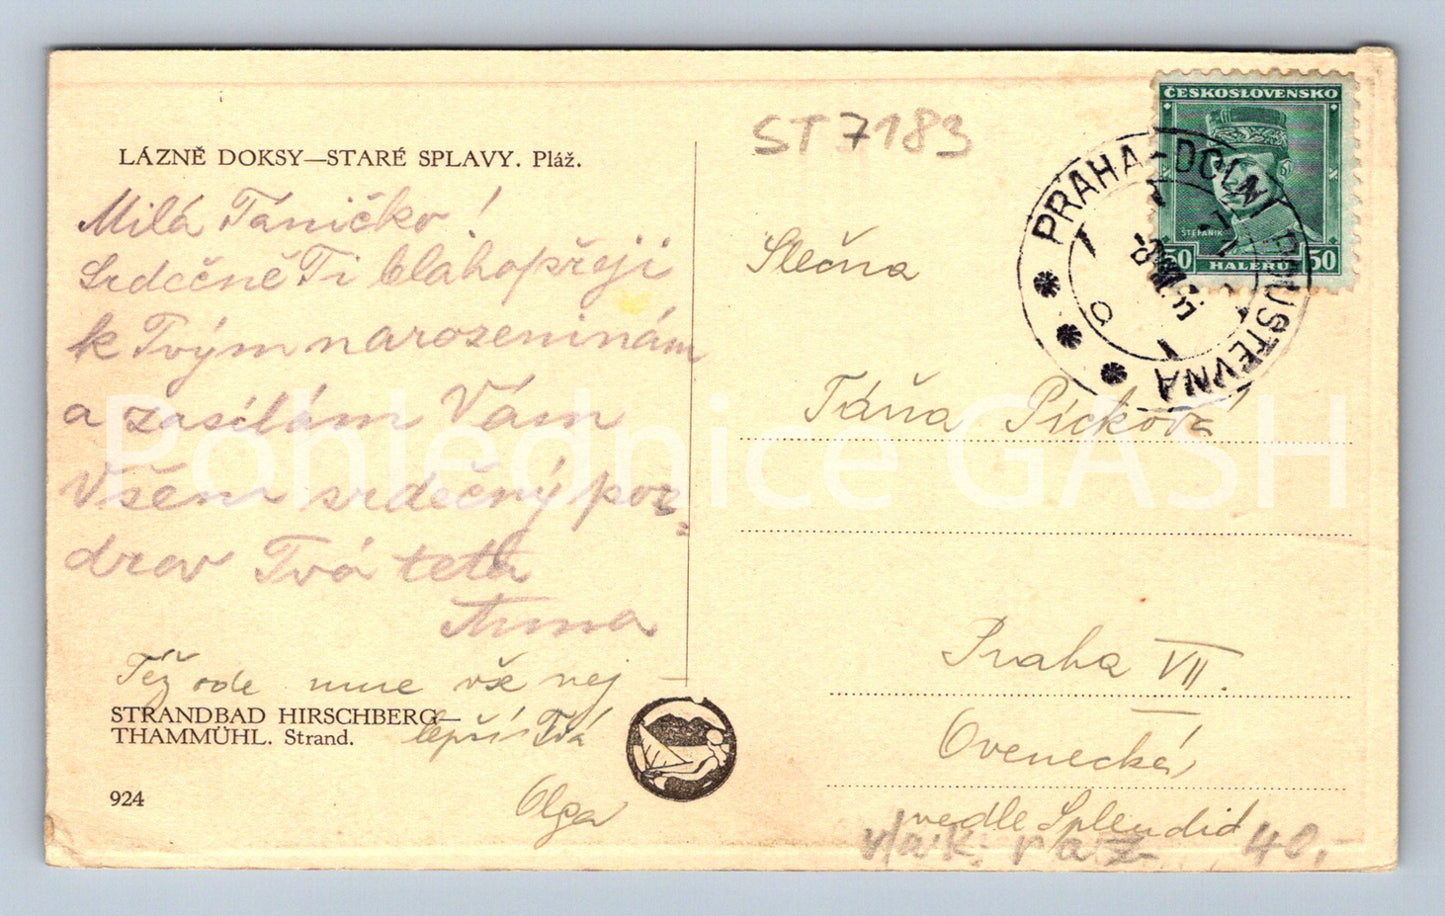 LÁZNĚ DOKSY—STARÉ SPLAVY. Pláž.
Milá Táničko!
Srdečně Ti blahopřeji
k Tvým narozeninám
a zasílám Vám
Všem srdečný poz-
drav Tvá teta
Anna
Též ode mne vše nej-
lepší Tvá
Olga
STRANDBAD HIRSCHBERG—
THAMMÜHL. Strand.
924
ST 7183
ČESKOSLOVENSKO
ŠTEFÁNIK
50 HALÉŘŮ 50
PRAHA-DOLNÍ
Slečna
Táňa Picková
Praha VII.
Ovenecká
vedle Splendid
vlak. raz 40,-
Pohlednice GASH